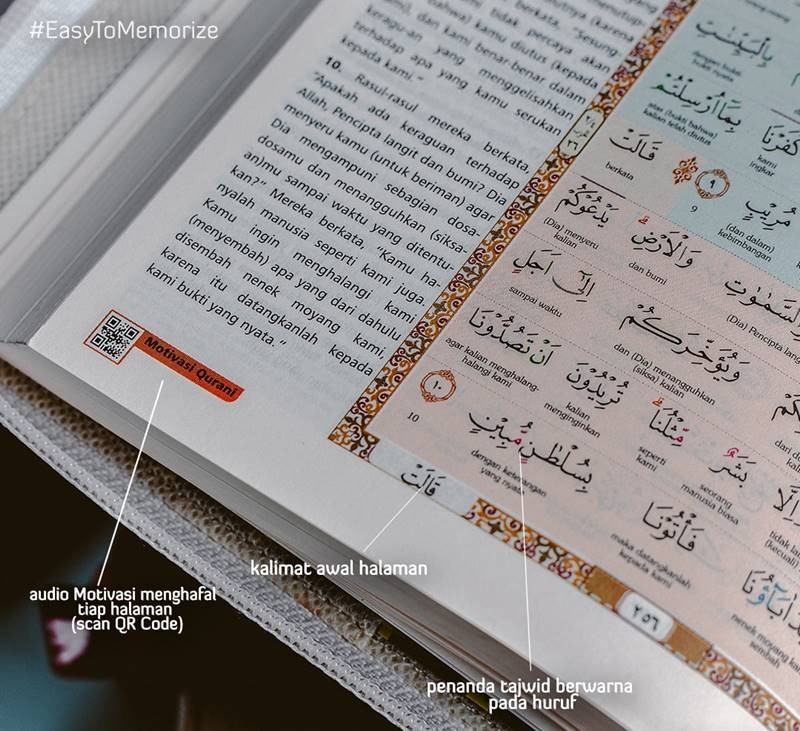 #EasyToMemorize
berkata, "Sesung
tidak percaya akan
(bahwa) kamu diutus (kepada
dan kami benar-benar dalam
keragu-an yang menggelisahkan
terhadap apa yang kamu serukan
kepada kami."
10. Rasul-rasul mereka berkata,
"Apakah ada keraguan terhadap
Allah, Pencipta langit dan bumi? Dia
menyeru kamu (untuk beriman) agar
Dia mengampuni sebagian dosa-
dosamu dan menangguhkan (siksa-
an)mu sampai waktu yang ditentu-
kan?" Mereka berkata, "Kamu ha-
nyalah manusia seperti kami juga.
Kamu ingin menghalangi kami
(menyembah) apa yang dari dahulu
disembah nenek moyang kami,
karena itu datangkanlah kepada
kami bukti yang nyata."
Motivasi Qurani
بِالْبَيِّنٰتِ
dengan bukti
bukti nyata
كَفَرْنَا بِمَآ اُرْسِلْتُمْ
kami
ingkar
atas (bukti bahwa)
kalian telah diutus
مُرِيْبٍ ٩ قَالَتْ
(dan dalam)
kebimbangan
9
berkata
السَّمٰوٰتِ وَالْاَرْضِ يَدْعُوْكُمْ
(Dia) Pencipta
dan bumi
(Dia) menyeru
kalian
وَيُؤَخِّرَكُمْ اِلٰٓى اَجَلٍ
dan (Dia) menangguhkan
(siksa) kalian
sampai waktu
اِلَّا بَشَرٌ مِّثْلُنَا تُرِيْدُوْنَ اَنْ تَصُدُّوْنَا
(kecuali)
seorang
manusia biasa
seperti
kami
kalian
menginginkan
agar kalian menghalang-
halangi kami
اٰبَاۤؤُنَا فَأْتُوْنَا بِسُلْطٰنٍ مُّبِيْنٍ ١٠
nenek moyang
sembah
maka datangkanlah
kepada kami
dengan keterangan
yang nyata
10
قَالَتْ
٢٥٦
audio Motivasi menghafal
tiap halaman
(scan QR Code)
kalimat awal halaman
penanda tajwid berwarna
pada huruf